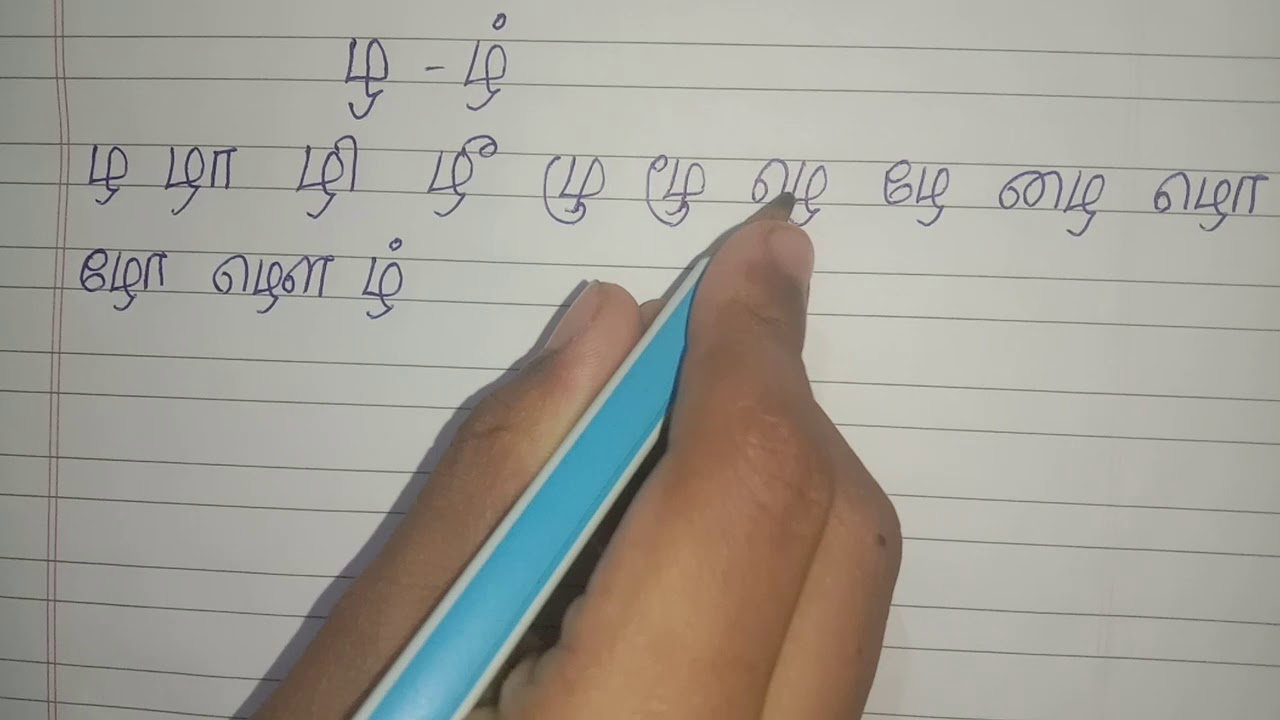 ழ - ழ்
ழ ழா ழி ழீ ழு ழூ ழெ ழே ழை ழொ
ழோ ழௌ ழ்